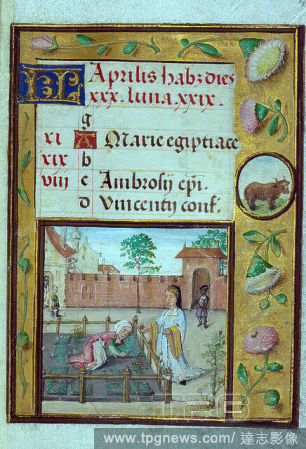 KL Aprilis habz dies
xxx. luna. xxix.
g
xi A Marie egiptiace
xix b
viii c Ambrosij epi.
d Vincentij conf.
www.tpgnews.com/達志影像